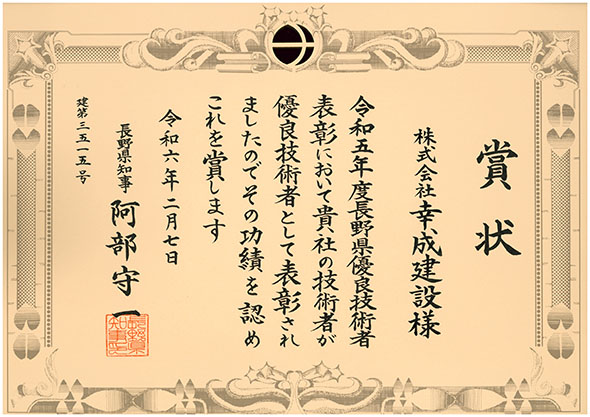 賞状
株式会社 幸成建設様
令和五年度長野県優良技術者
表彰において貴社の技術者が
優良技術者として表彰され
ましたのでその功績を認め
これを賞します
令和六年二月七日
長野県知事 阿部守一
長野県知事印
建第三五一五号